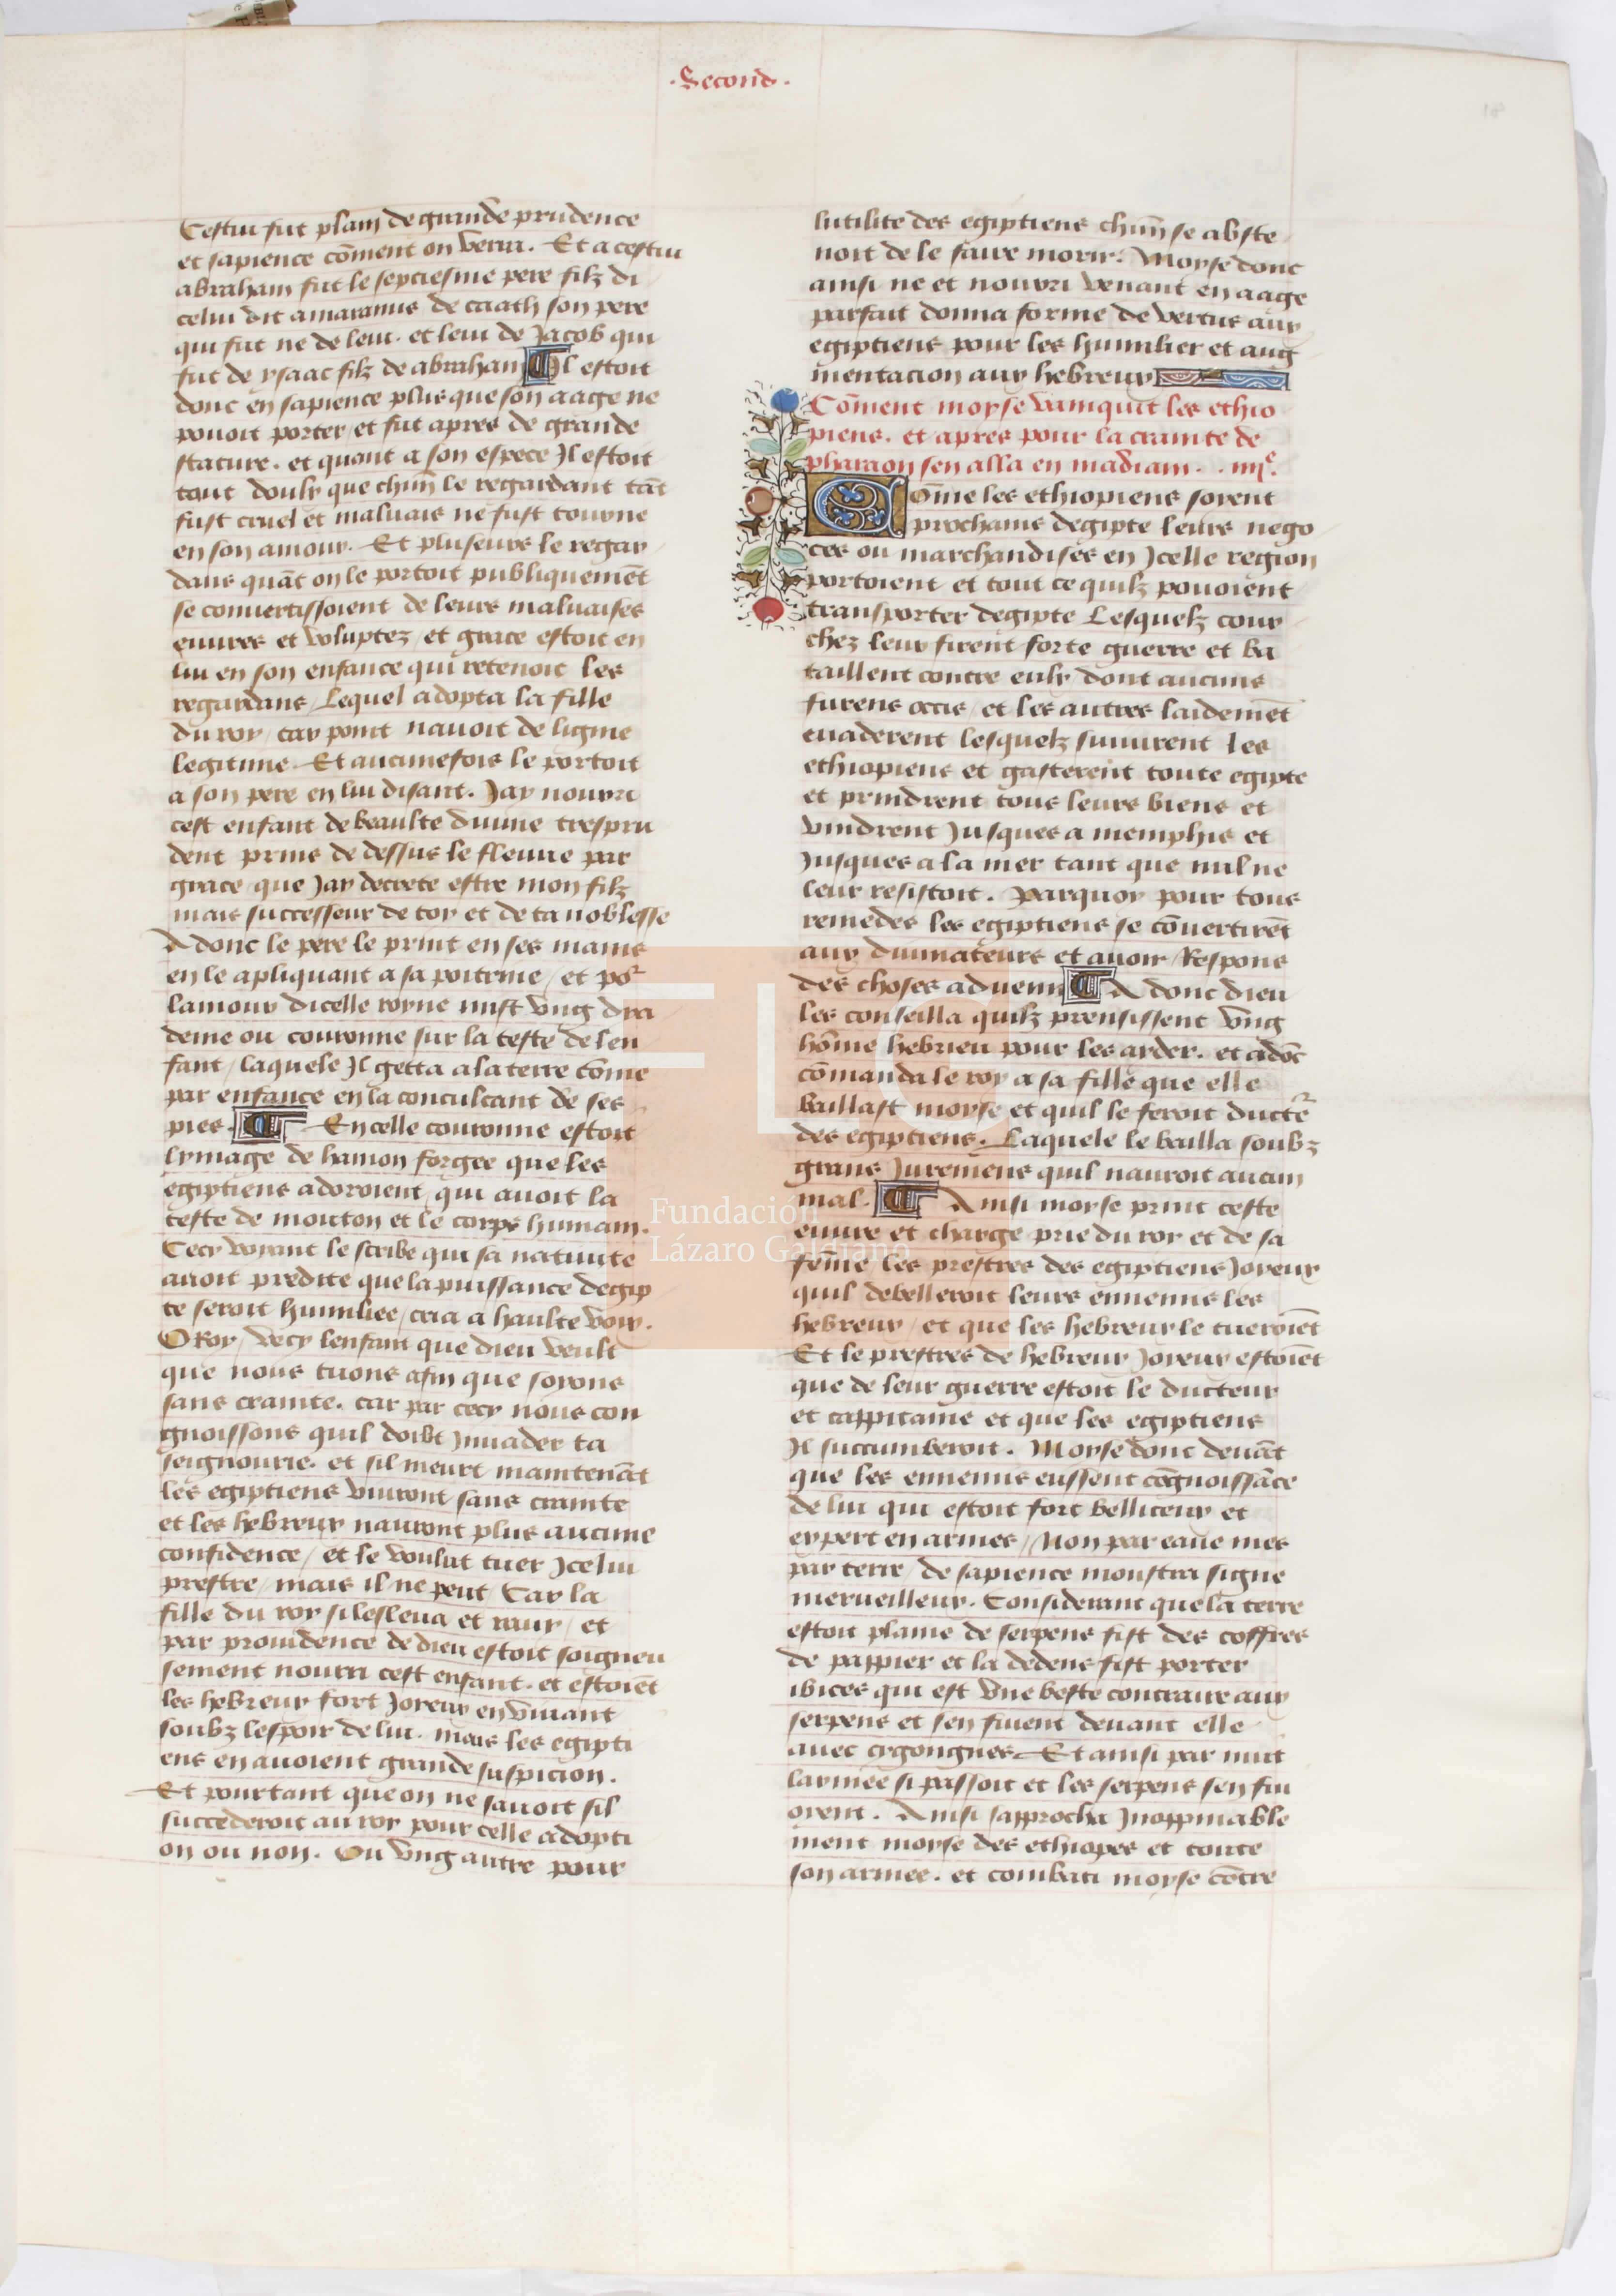 .Second.
18
Cestui fut plain de grande prudence
et sapience cõment on verra. Et a cestui
abraham fut le septiesme pere filz di
celui dit amaramus de caath son pere
qui fut ne de leui. et leui de Jacob qui
fut de ysaac filz de abraham Il estoit
donc en sapience plus que son aage ne
pouoit porter et fut apres de grande
stature. et quant a son espece Il estoit
tout doulx que chũn le regardant tãt
fust cruel et maluais ne fust tourne
en son amour. Et pluseurs le regar
dans quãt on le portoit publiquemẽt
se conuertissoient de leurs maluaises
euures et voluptez / et grace estoit en
lui en son enfance qui retenoit les
regardans / Lequel adopta la fille
du roy / car point nauoit de ligine
legitime. Et aucunesfois le portoit
a son pere en lui disant. Jay nourri
cest enfant de beaulte diuine trespru
dent prins de dessus le fleuue par
grace que Jay decrete estre mon filz
mais successeur de toy et de ta noblesse
A donc le pere le print en ses mains
en le apliquant a sa poitrine / et por
lamour dicelle royne mist vng dia
deme ou couronne sur la teste de len
fant / laquele Il getta a la terre cõme
par enfance en la conculcant de ses
pies. En celle couronne estoit
lymage de hamon forgee que les
egiptiens adoroient qui auoit la
teste de mouton et le corps humain.
Cecy voyant le scribe qui sa natiuite
auoit predite que la puissance degip
te seroit humiliee / cria a haulte voix.
O Roy / vecy lenfant que dieu veult
que nous tuons afin que soyons
sans crainte. car par cecy nous con
gnoissons quil doibt Inuader ta
seignourie. et sil meurt maintenãt
les egiptiens viuront sans crainte
et les hebreux nauront plus aucune
confidence / et le voulut tuer Icelui
prestre / mais il ne peut Car la
fille du roy si lesleua et rauy / et
par prouidence de dieu estoit soigneu
sement nourri cest enfant. et estoiẽt
les hebreux fort Joyeux en viuant
soubz lespoir de lui. mais les egipti
ens en auoient grande suspicion.
Et pourtant que on ne sauoit sil
succederoit au roy pour celle adopti
on ou non. Ou vng autre pour
lutilite des egiptiens chũn se abste
noit de le faire morir. Moyse donc
ainsi ne et nourri venant en aage
parfait donna forme de vertus aux
egiptiens pour les humilier et aug
mentacion aux hebreux
Cõment moyse vainquit les ethio
piens. et apres pour la crainte de
pharaon sen alla en madiam. . iiije.
Cõme les ethiopiens soyent
prochains degipte leurs nego
ces ou marchandises en Icelle region
portoient et tout ce quilz pouoient
transporter degipte Lesquelz cour
chez leur firent forte guerre et ba
taillent contre eulx dont aucuns
furens occis / et les autres laidemẽt
euaderent lesquelz suiuirent les
ethiopiens et gasterent toute egipte
et prindrent tous leurs biens et
vindrent Jusques a memphis et
Jusques a la mer tant que nul ne
leur resistoit. Parquoy pour tous
remedes les egiptiens se cõuertirẽt
aux diuinateurs et auoir Respons
des choses aduenir A donc dieu
les conseilla quilz prensissent vng
hõme hebrieu pour les aider. et adõc
cõmanda le roy a sa fille que elle
baillast moyse et quil le feroit ductẽr
des egiptiens. Laquele le bailla soubz
grans Juremens quil nauroit aucun
mal. Ainsi moyse print ceste
euure et charge prie du roy et de sa
fẽme les prestres des egiptiens Joyeux
quil debelleroit leurs ennemis les
hebreux / et que les hebreux le tueroiẽt
Et le prestres de hebreux Joyeux estoiẽt
que de leur guerre estoit le ducteur
et cappitaine et que les egiptiens
Il succumberoit. Moyse donc deuãt
que les ennemis eussent cõgnoissãce
de lui qui estoit fort belliceux et
expert en armes / Non par eaue mes
par terre / de sapience monstra signe
merueilleux. Considerant que la terre
estoit plaine de serpens fist des coffres
de pappier et la dedens fist porter
ibices qui est vne beste contraire aux
serpens et sen fuient deuant elle
auec cygongnes. Et ainsi par nuit
larmee si passoit et les serpens sen fui
oient. Ainsi sapprocha Inoppinable
ment moyse des ethiopes et toute
son armee. et combati moyse cõtre
Fundación
Lázaro Galdiano
FLG